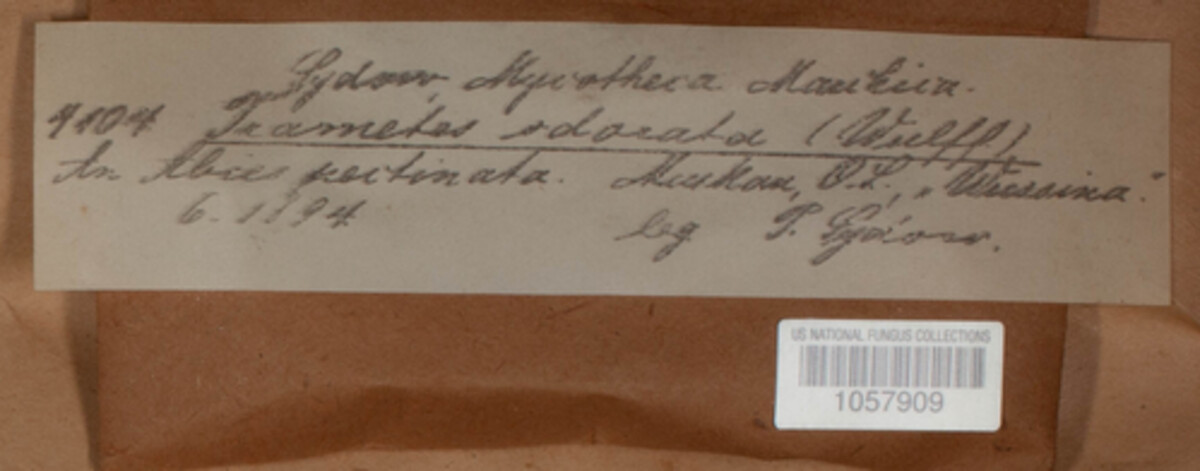 Sydow, Mycotheca Marchica.
4104 Trametes odorata (Wulff.)
An Abies pectinata. Muskau, O.L., „Wussina“.
6.1894 leg P. Sydow.
US NATIONAL FUNGUS COLLECTIONS
1057909